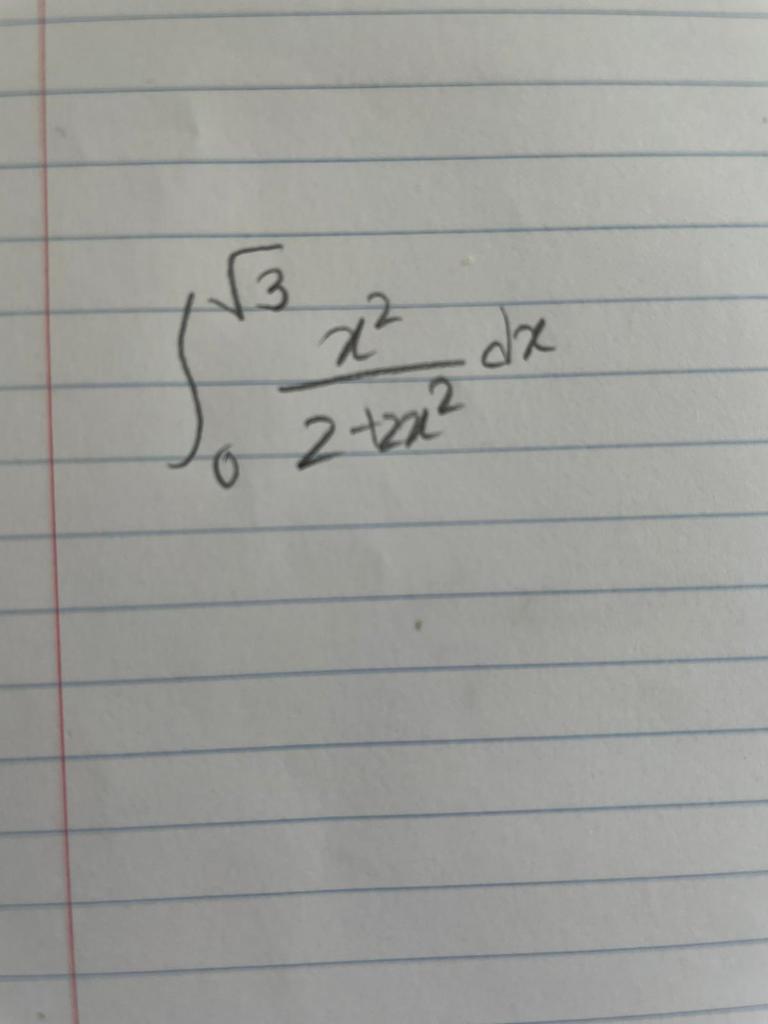 ∫₀^√3 x²/(2+2x²) dx